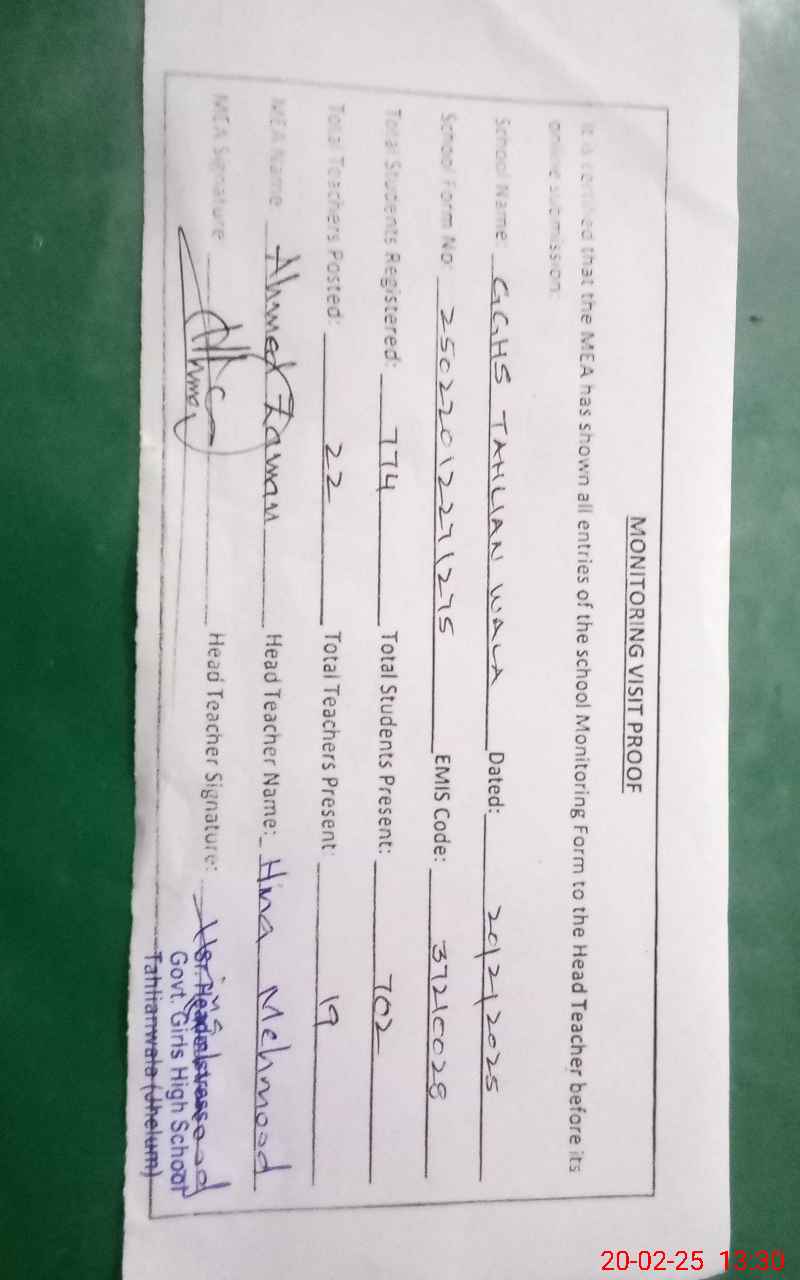 MONITORING VISIT PROOF
It is certified that the MEA has shown all entries of the school Monitoring Form to the Head Teacher before its
online submission.
School Name: GGHS TAHLIAN WALA Dated: 20/2/2025
School Form No: 2502201221275 EMIS Code: 37210028
Total Students Registered: 774 Total Students Present: 702
Total Teachers Posted: 22 Total Teachers Present: 19
MEA Name: Ahmed Zaman Head Teacher Name: Hina Mehmood
MEA Signature Head Teacher Signature:
Sr. Headmistress
Govt. Girls High School
Tahlianwala (Jhelum)
20-02-25 13:30